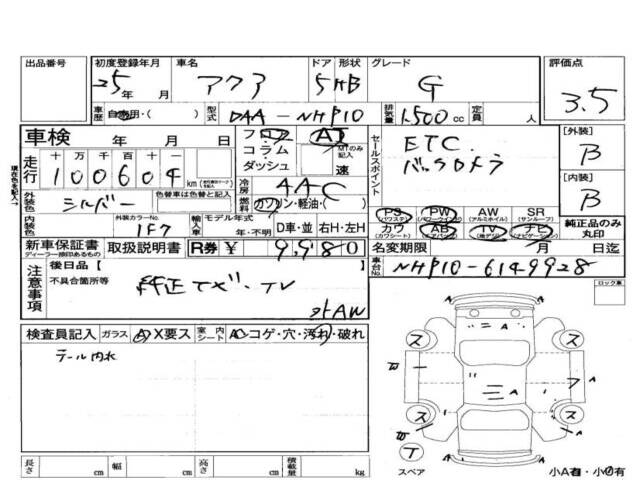 出品番号 初度登録年月 車名 ドア 形状 グレード 評価点
25年 月 アクア 5HB G 3.5
車歴 自家用・( ) 型式 DAA-NHP10 排気量 1500cc 定員 人
車検 年 月 日 フロア AT セールスポイント ETC. [外装]
コラム MTのみ記入 バックカメラ B
走行 十 万 千 百 十 一 ダッシュ 速
100604 km 冷房 AAC [内装]
外装色 シルバー 色替車は色替と記入 燃料 ガソリン・軽油・( ) B
PS PW AW SR
(パワステ) (パワーウィンドウ) (アルミホイル) (サンルーフ)
内装色 外装カラーNo. 1F7 輸入車 モデル年式 年・不明 D車・並 右H・左H カワ AB TV ナビ 純正品のみ丸印
(カワシート) (エアバッグ) (地デジ) (ナビゲーション)
新車保証書 取扱説明書 R券 ¥ 9980 名変期限 月 日迄
ディーラー捺印あるもの
車台No. NHP10-6149928
注意事項 後日品【
不具合箇所等 純正ナビ・TV
社外AW
ロック車
検査員記入 ガラス A・X要ス 室内シート AC・コゲ・穴・汚れ・破れ
テール内水
ス ス
W A
二 A
三 A
A
ス ス
W A
T
スペア 小A有・小U有
長さ cm 幅 cm 高さ cm 積載量 kg
現在色を記入→